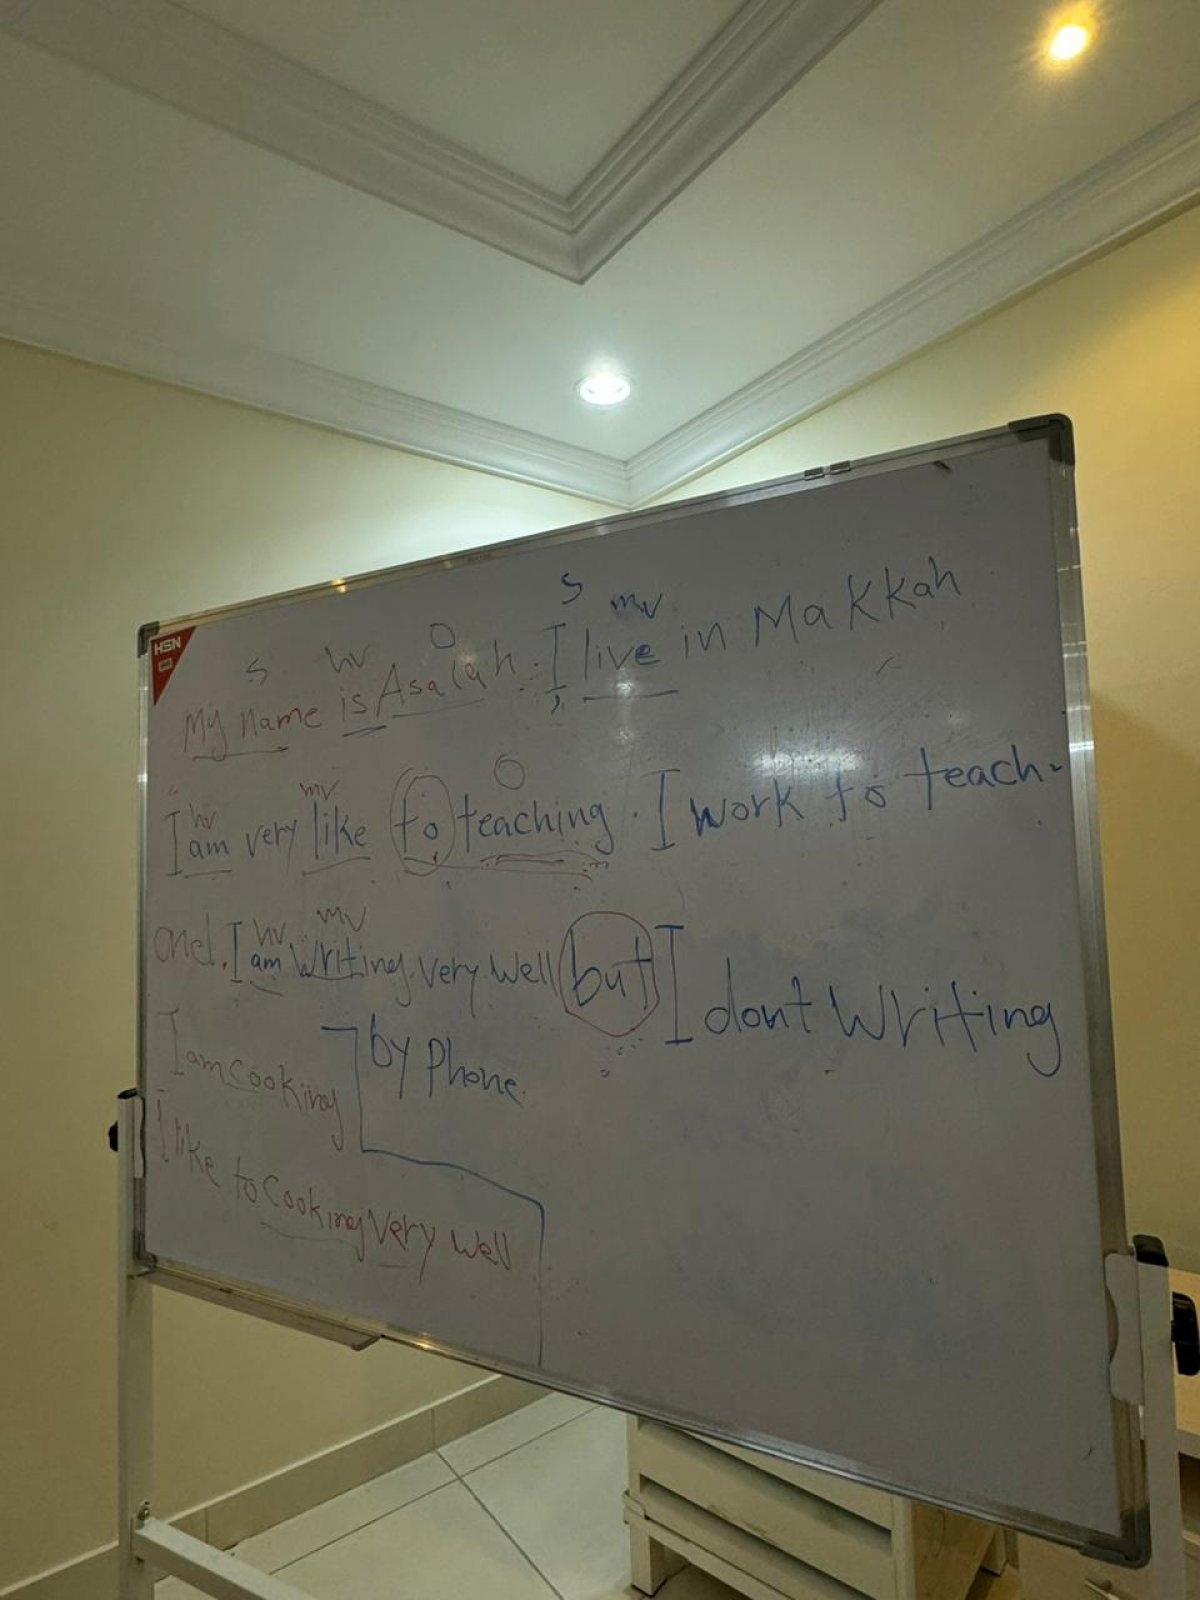 HSN
S hv O S mv
My name is Asalah. I live in Makkah
hv mv O
I am very like to teaching. I work to teach.
hv mv
and. I am writing. very well but I dont writing
by phone.
I am cooking
I like to cooking very well